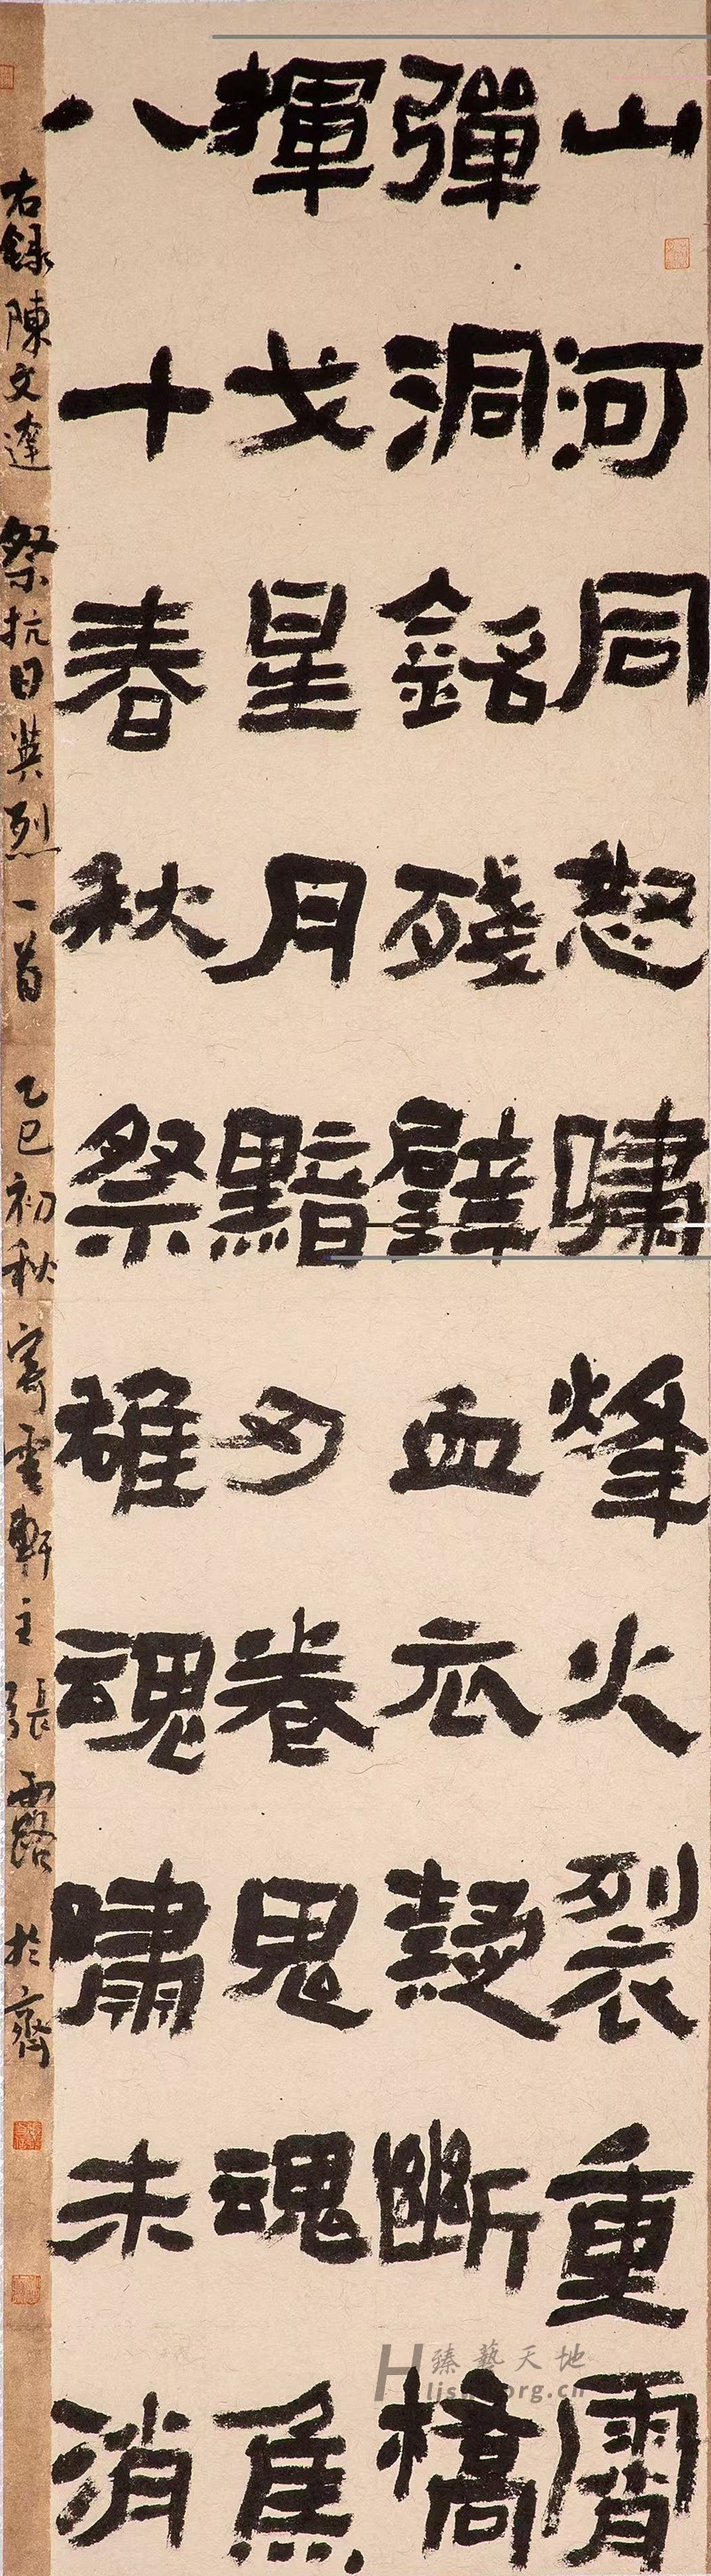 山河同怒嘯烽火裂重霄
彈洞銘殘壁血衣斷橋
揮戈星月黯刃卷鬼魂焦
八十春秋祭雄魂嘯未消
右錄陳文達祭抗日英烈一首乙巳初秋寄雲軒主張露於齋
臻藝天地